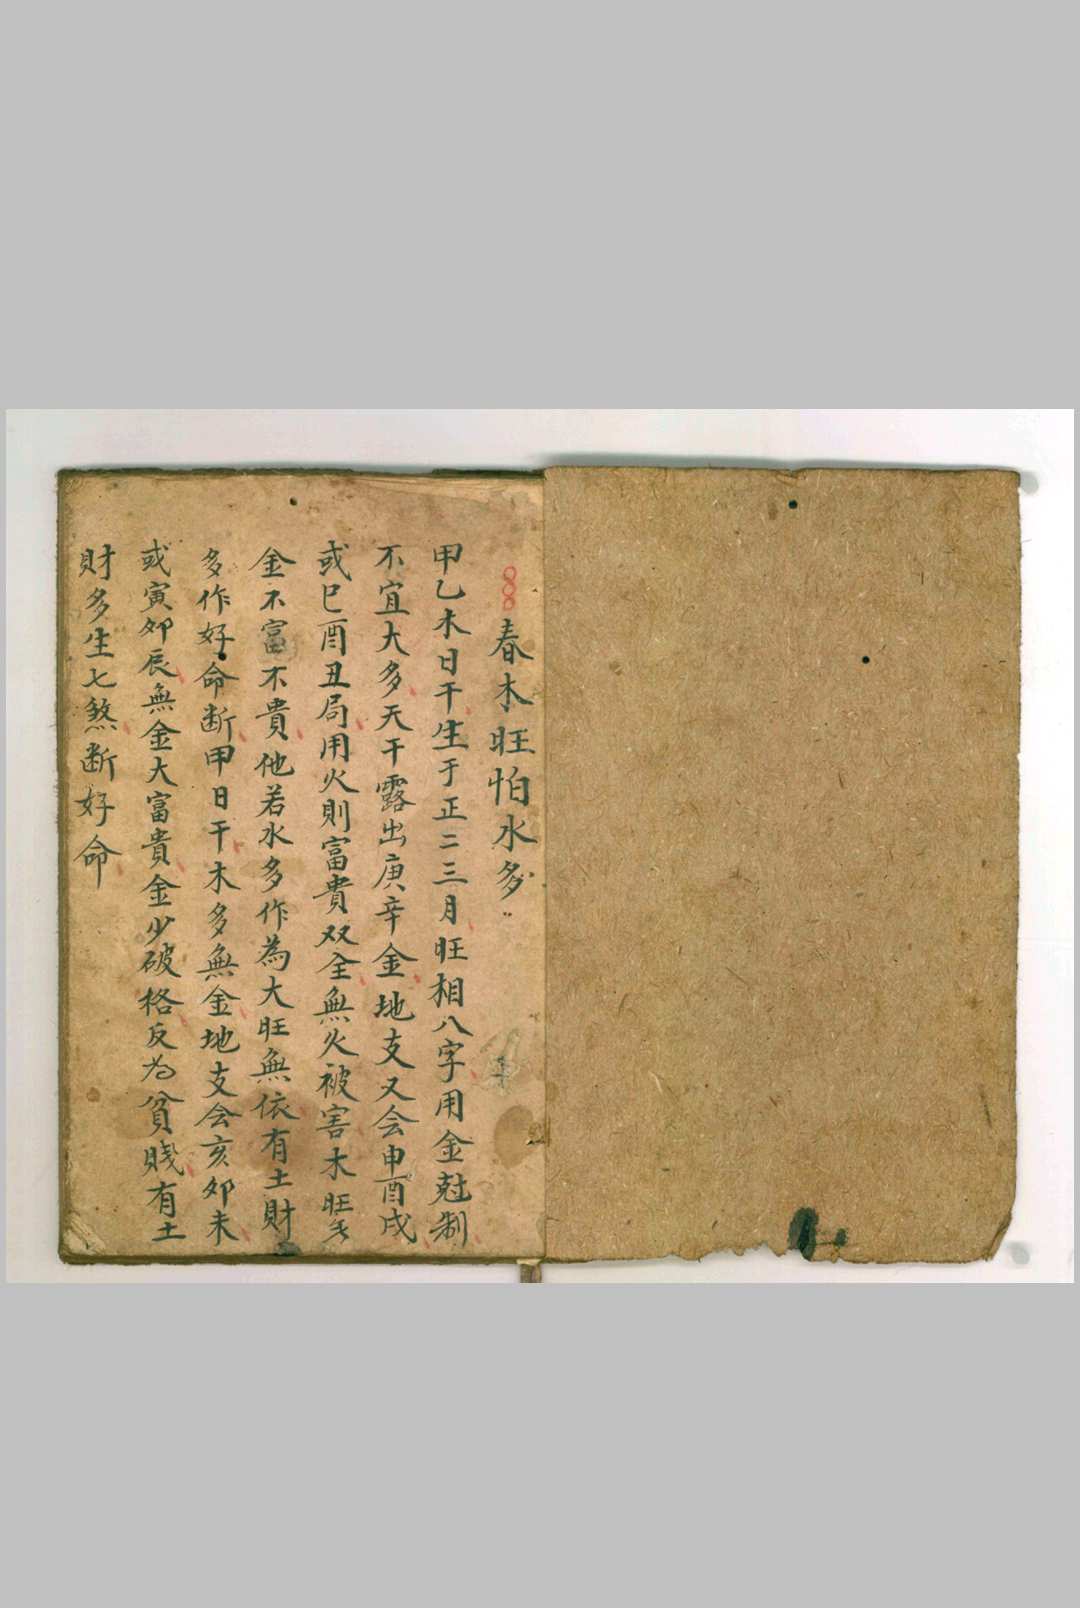 春木旺怕水多
甲乙木日干生于正二三月旺相八字用金尅制
不宜大多天干露出庚辛金地支又会申酉戌
或巳酉丑局用火則富貴双全無火被害木旺多
金不富不貴他若水多作為大旺無依有土財
多作好命断甲日干木多無金地支会亥卯未
或寅卯辰無金大富貴金少破格反为貧賤有土
財多生七煞断好命